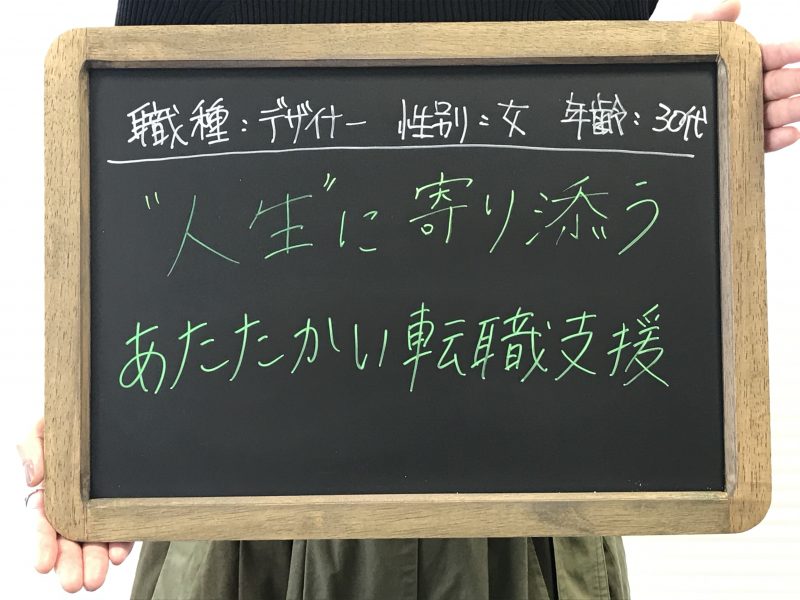 職種：デザイナー 性別：女 年齢：30代
"人生"に寄り添う
あたたかい転職支援